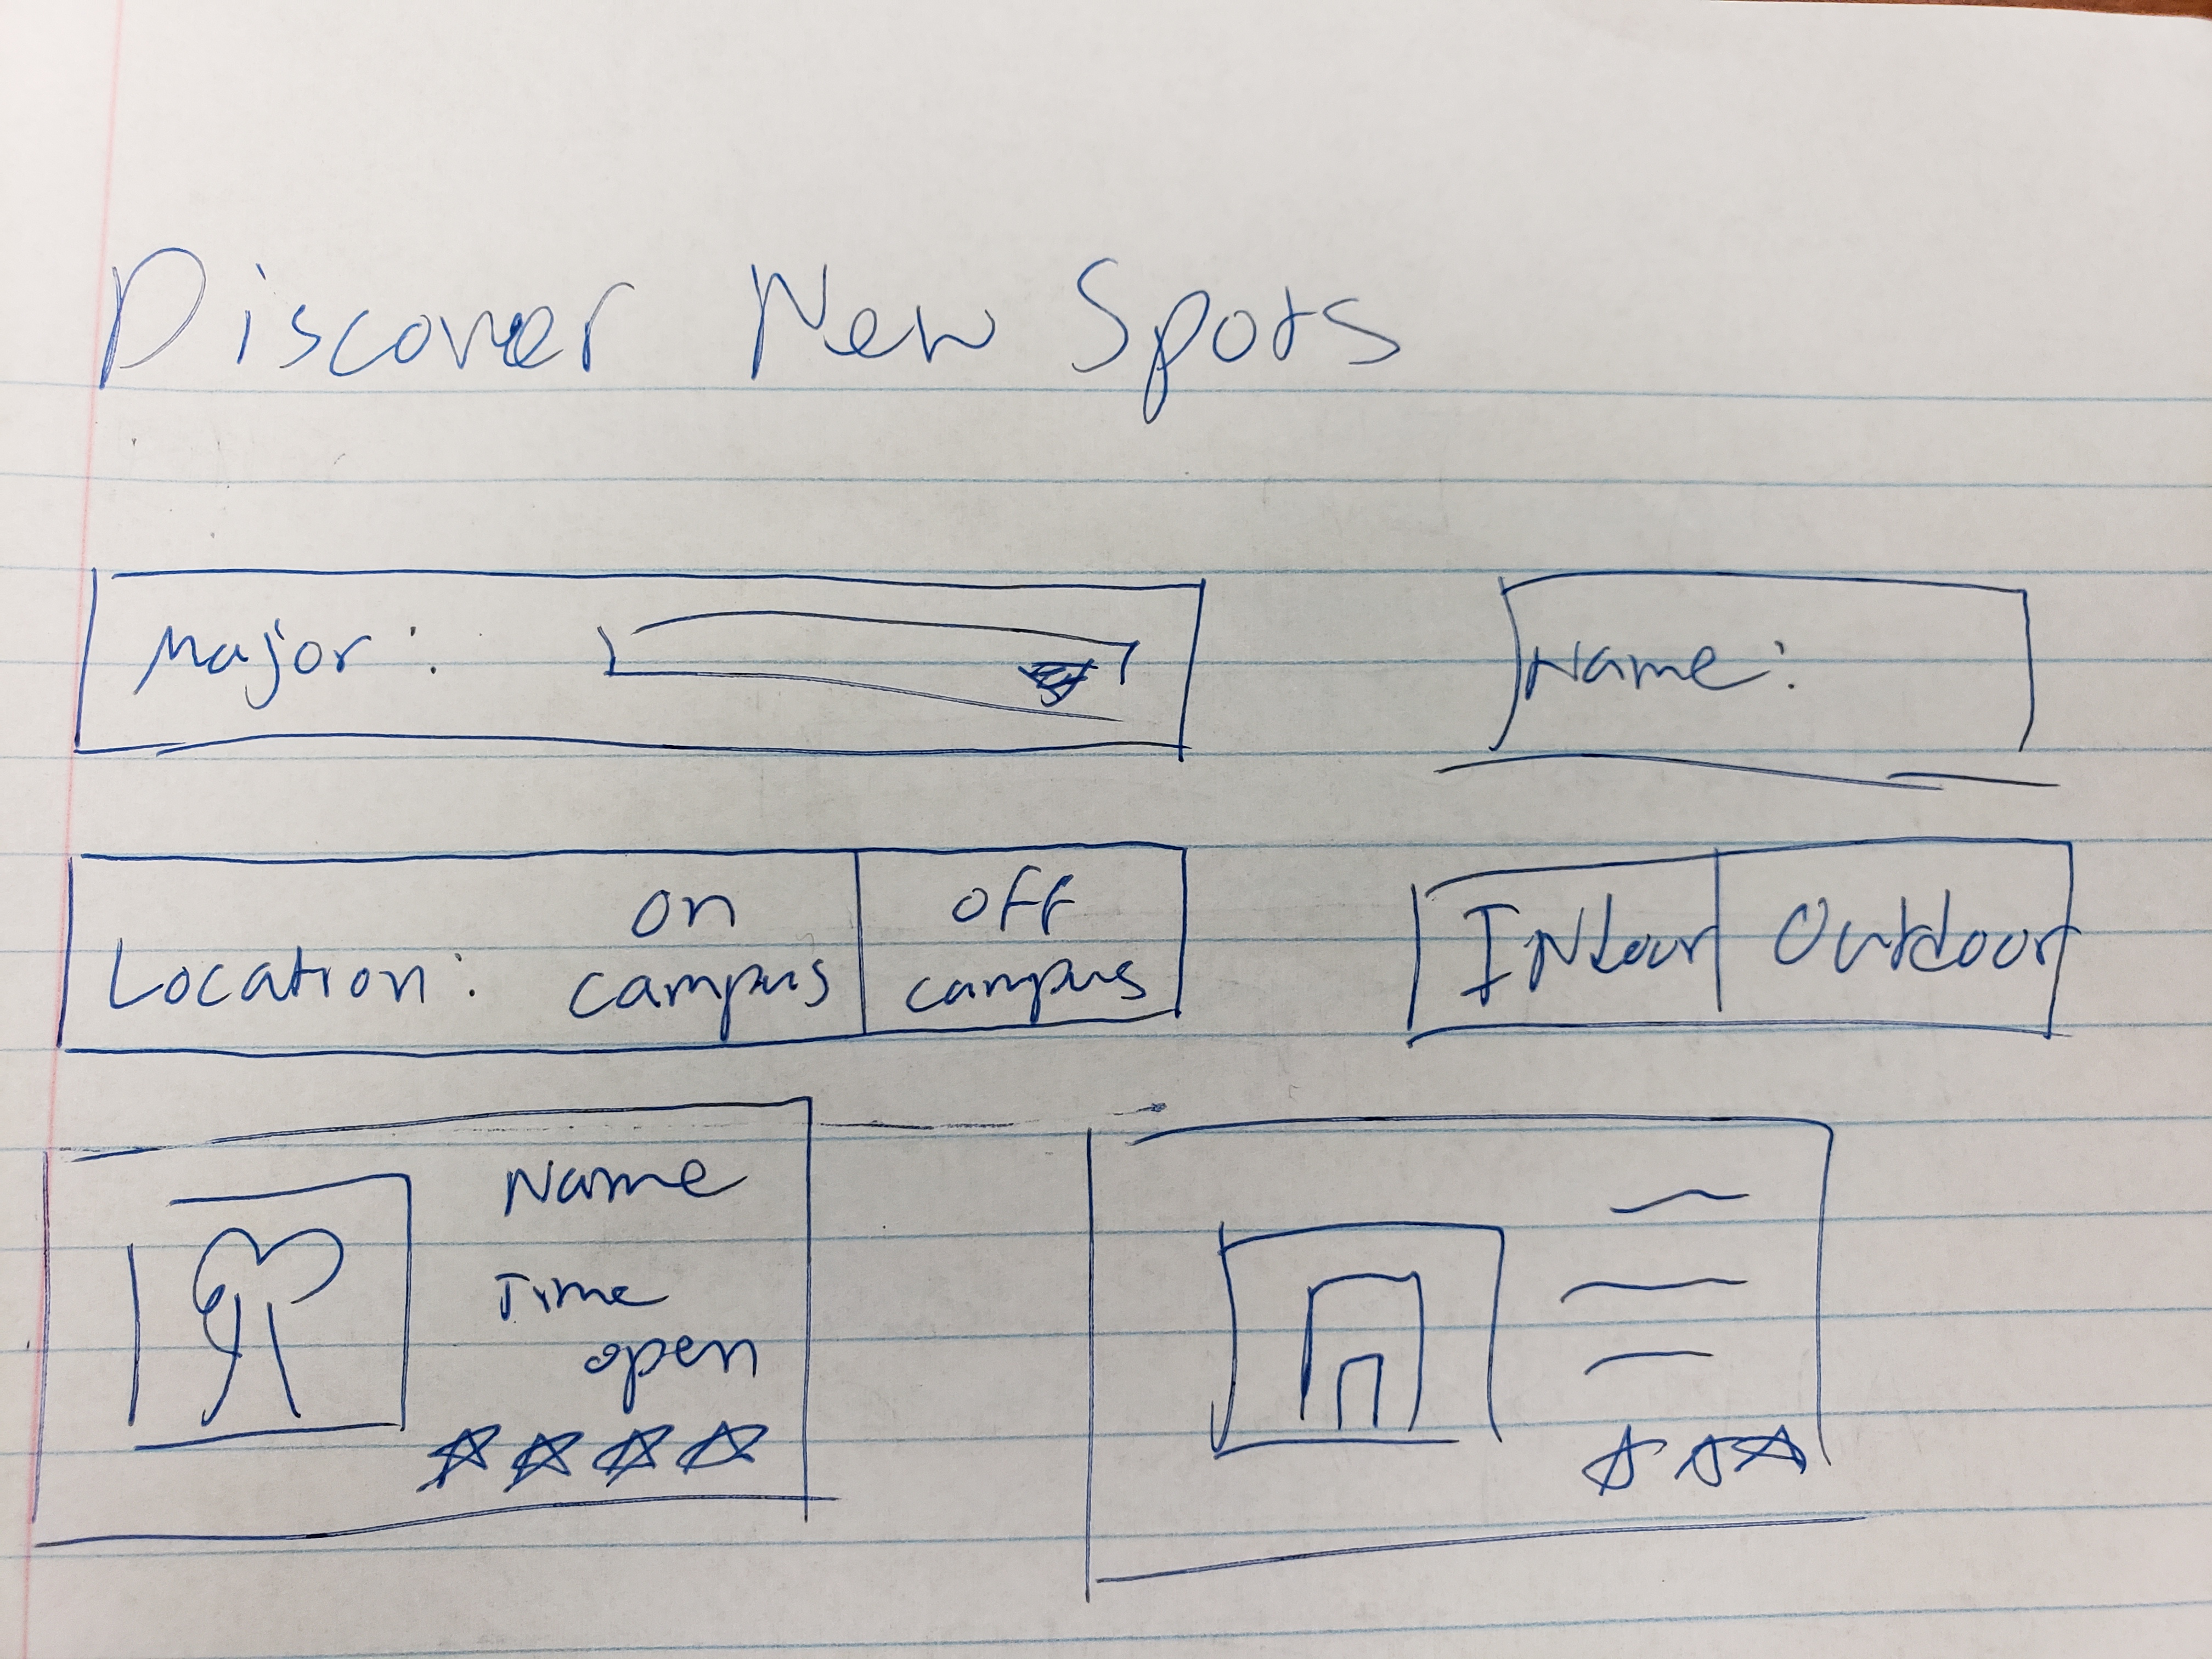 Discover New Spots
Major:
Name:
Location:
on
campus
off
campus
INdoor
Outdoor
Name
Time
open